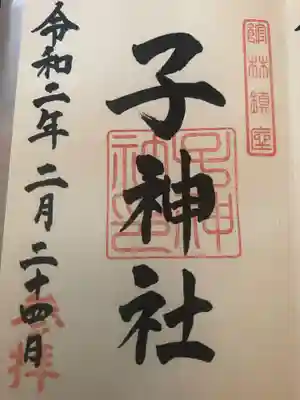 館林鎮座
子神社
子神社印
令和二年二月二十四日
参拝